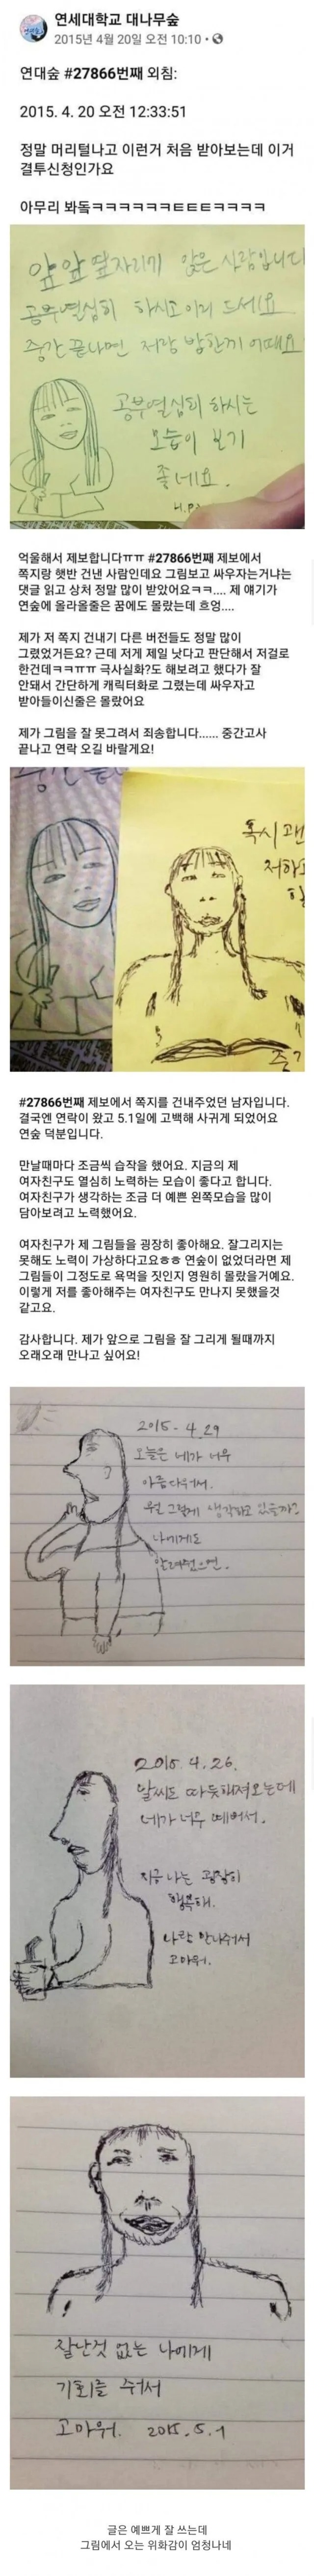 연세대학교 대나무숲
2015년 4월 20일 오전 10:10 •
연대숲 #27866번째 외침:
2015. 4. 20 오전 12:33:51
정말 머리털나고 이런거 처음 받아보는데 이거
결투신청인가요
아무리 봐돜ㅋㅋㅋㅋㅋㅋㅌㅌㅌㅋㅋㅋㅋ
앞앞 옆자리에 앉은 사람입니다
공부열심히 하시고 이거 드세요
중간 끝나면 저랑 밥한끼 어때요
공부열심히 하시는
모습이 보기
좋네요.
억울해서 제보합니다ㅠㅠ #27866번째 제보에서
쪽지랑 햇반 건낸 사람인데요 그림보고 싸우자는거냐는
댓글 읽고 상처 정말 많이 받았어요ㅋㅋ.... 제 얘기가
연숲에 올라올줄은 꿈에도 몰랐는데 흐엉....
제가 저 쪽지 건내기 다른 버전들도 정말 많이
그렸었거든요? 근데 저게 제일 낫다고 판단해서 저걸로
한건데ㅋㅋㅠㅠ 극사실화?도 해보려고 했다가 잘
안돼서 간단하게 캐릭터화로 그렸는데 싸우자고
받아들이신줄은 몰랐어요
제가 그림을 잘 못그려서 죄송합니다...... 중간고사
끝나고 연락 오길 바랄게요!
혹시 괜
저하고
#27866번째 제보에서 쪽지를 건내주었던 남자입니다.
결국엔 연락이 왔고 5.1일에 고백해 사귀게 되었어요
연숲 덕분입니다.
만날때마다 조금씩 습작을 했어요. 지금의 제
여자친구도 열심히 노력하는 모습이 좋다고 합니다.
여자친구가 생각하는 조금 더 예쁜 왼쪽모습을 많이
담아보려고 노력했어요.
여자친구가 제 그림들을 굉장히 좋아해요. 잘그리지는
못해도 노력이 가상하다고요ㅎㅎ 연숲이 없었더라면 제
그림들이 그정도로 욕먹을 짓인지 영원히 몰랐을거예요.
이렇게 저를 좋아해주는 여자친구도 만나지 못했을것
같고요.
감사합니다. 제가 앞으로 그림을 잘 그리게 될때까지
오래오래 만나고 싶어요!
2015. 4. 29
오늘은 네가 너무
아름다워서.
뭘 그렇게 생각하고 있을까?
나에게도
알려줬으면.
2015. 4. 26.
날씨도 따뜻해져오는데
네가 너무 예뻐서.
지금 나는 굉장히
행복해.
나랑 만나줘서
고마워.
잘난것 없는 나에게
기회를 줘서
고마워. 2015. 5. 1
글은 예쁘게 잘 쓰는데
그림에서 오는 위화감이 엄청나네